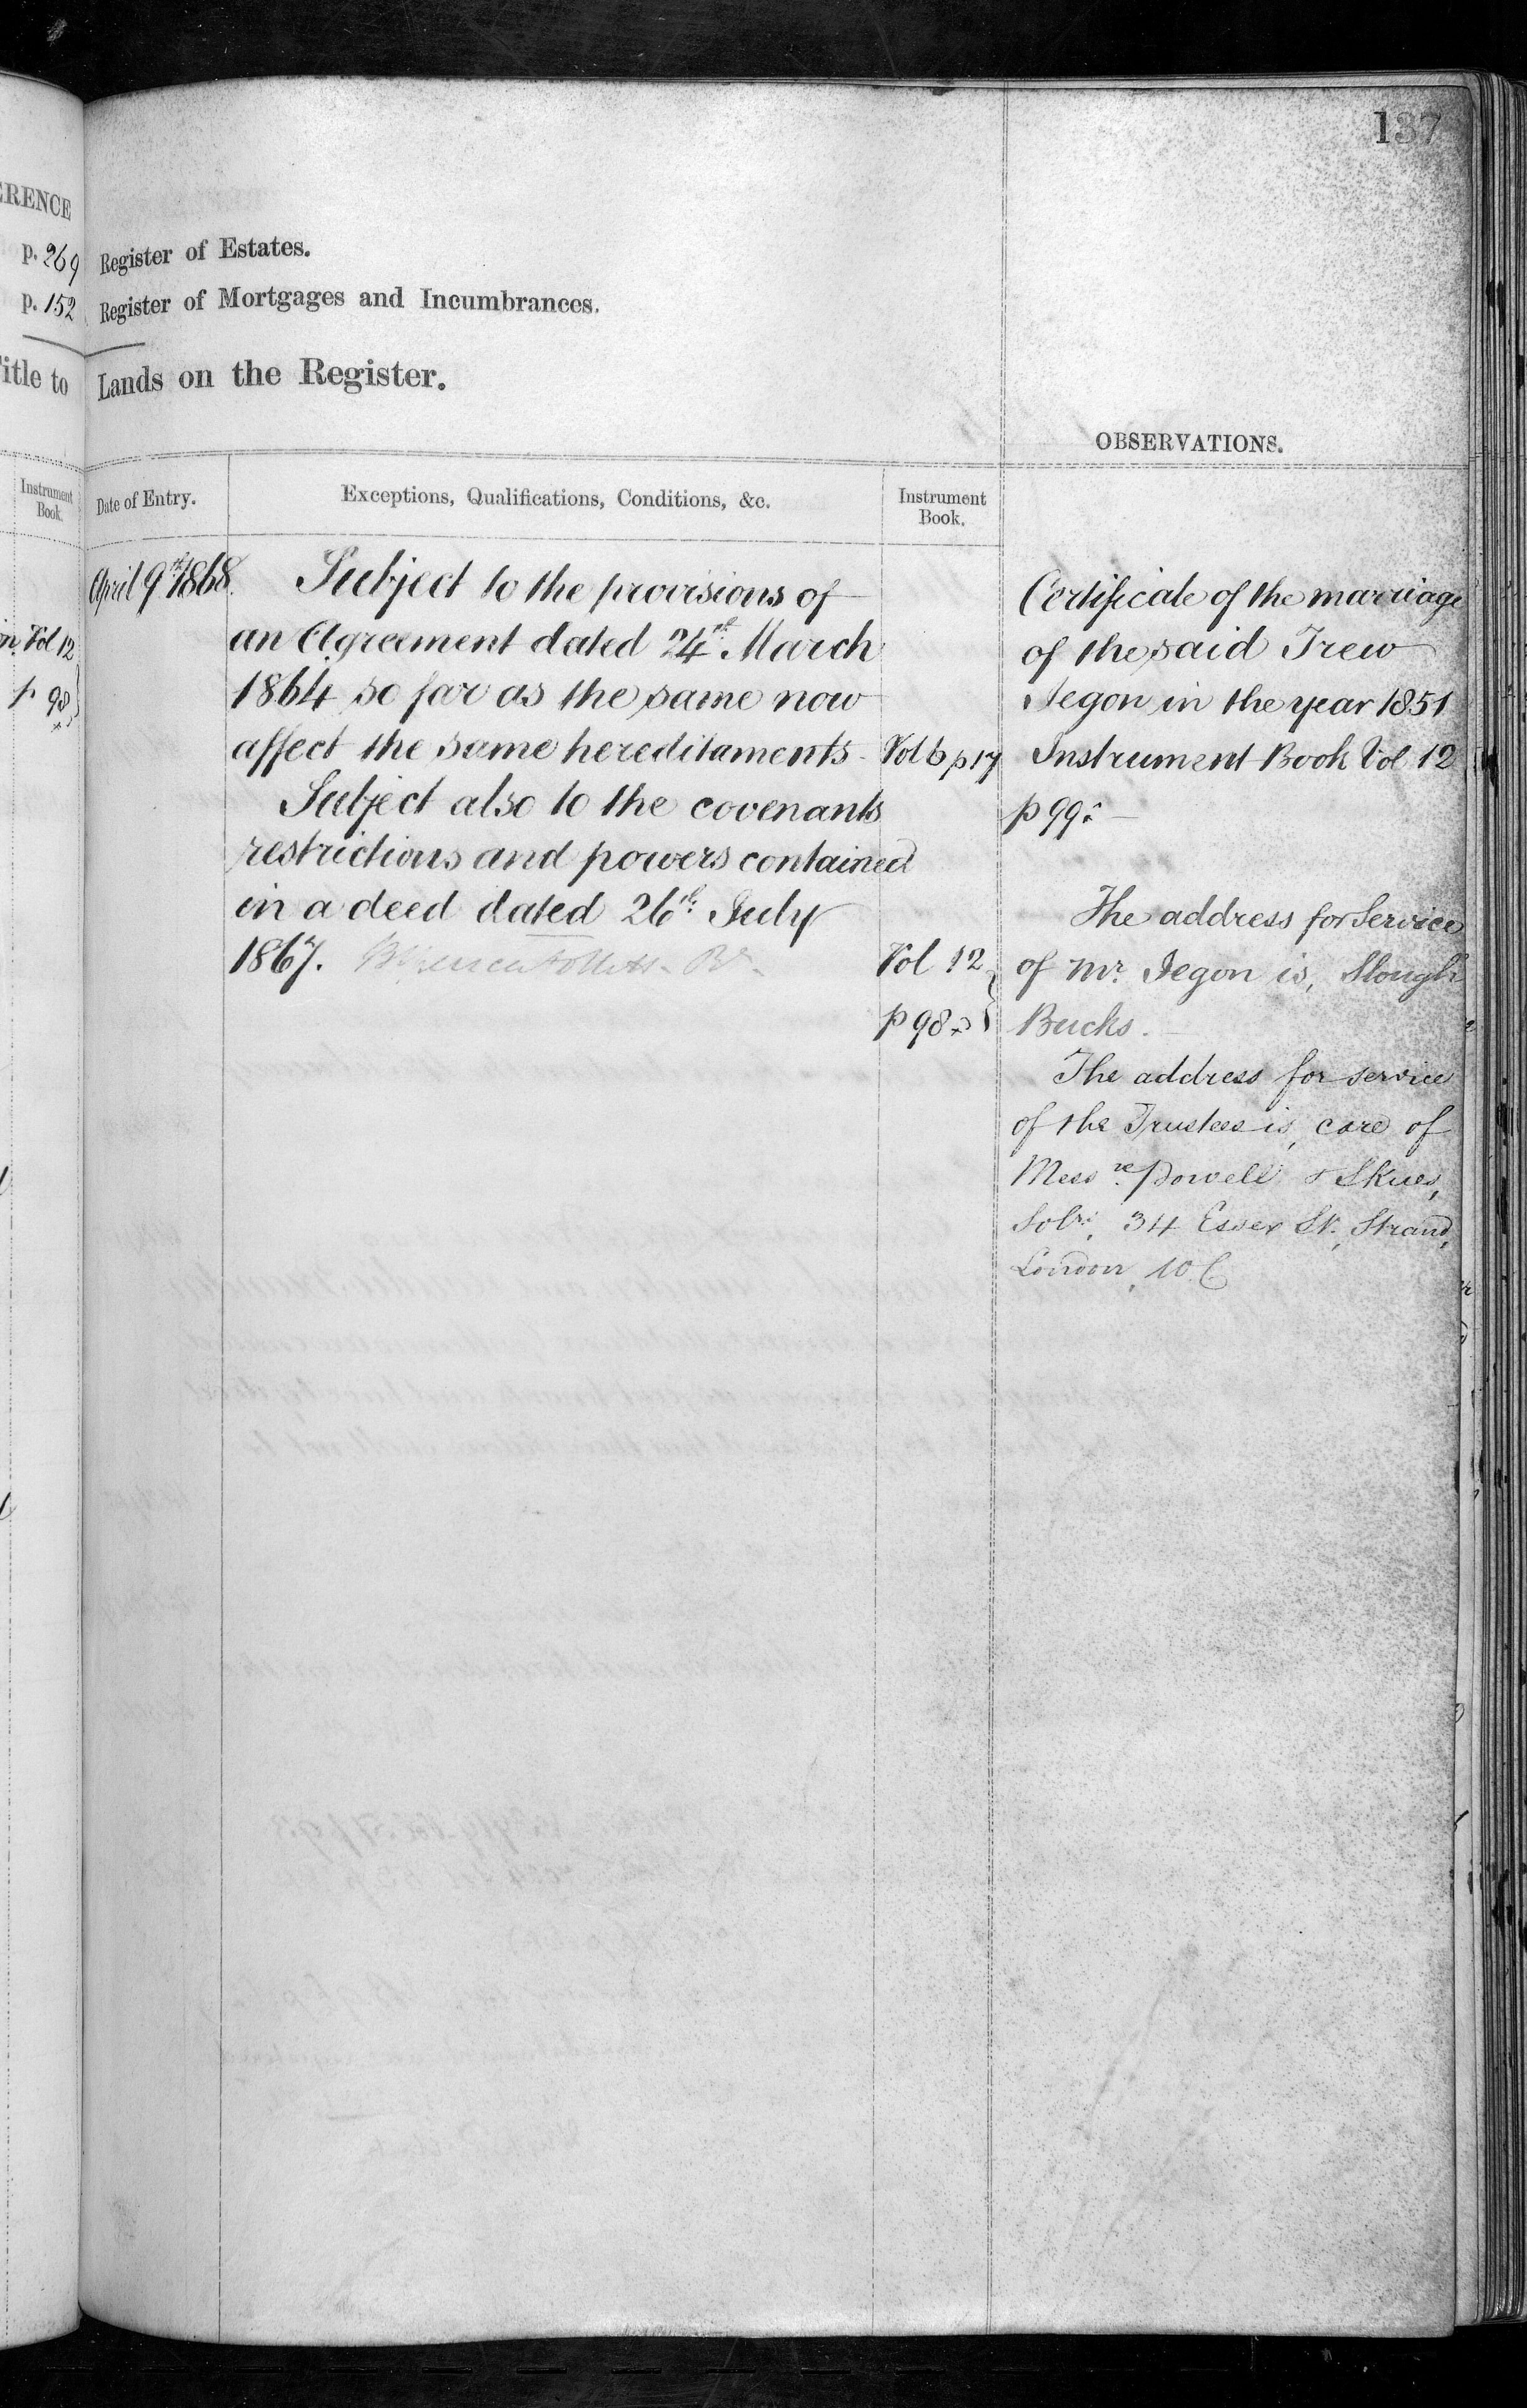 137
ERENCE
p. 269 Register of Estates.
p. 152 Register of Mortgages and Incumbrances.
Title to Lands on the Register.
OBSERVATIONS.
Instrument Book.
Date of Entry.
Exceptions, Qualifications, Conditions, &c.
Instrument Book.
Vol 12
p 98
April 9th 1868.
Subject to the provisions of
an Agreement dated 24th March
1864 so far as the same now
affect the same hereditaments - Vol 6 p 17
Subject also to the covenants
restrictions and powers contained
in a deed dated 26th July
1867.
Vol 12
p 98
Certificate of the marriage
of the said Trew
Jegon in the year 1851
Instrument Book Vol 12
p 99
The address for Service
of Mr. Jegon is, Slough
Bucks.
The address for service
of the Trustees is, care of
Messrs Powell & Skues,
Solrs, 34 Essex St., Strand,
London, W C